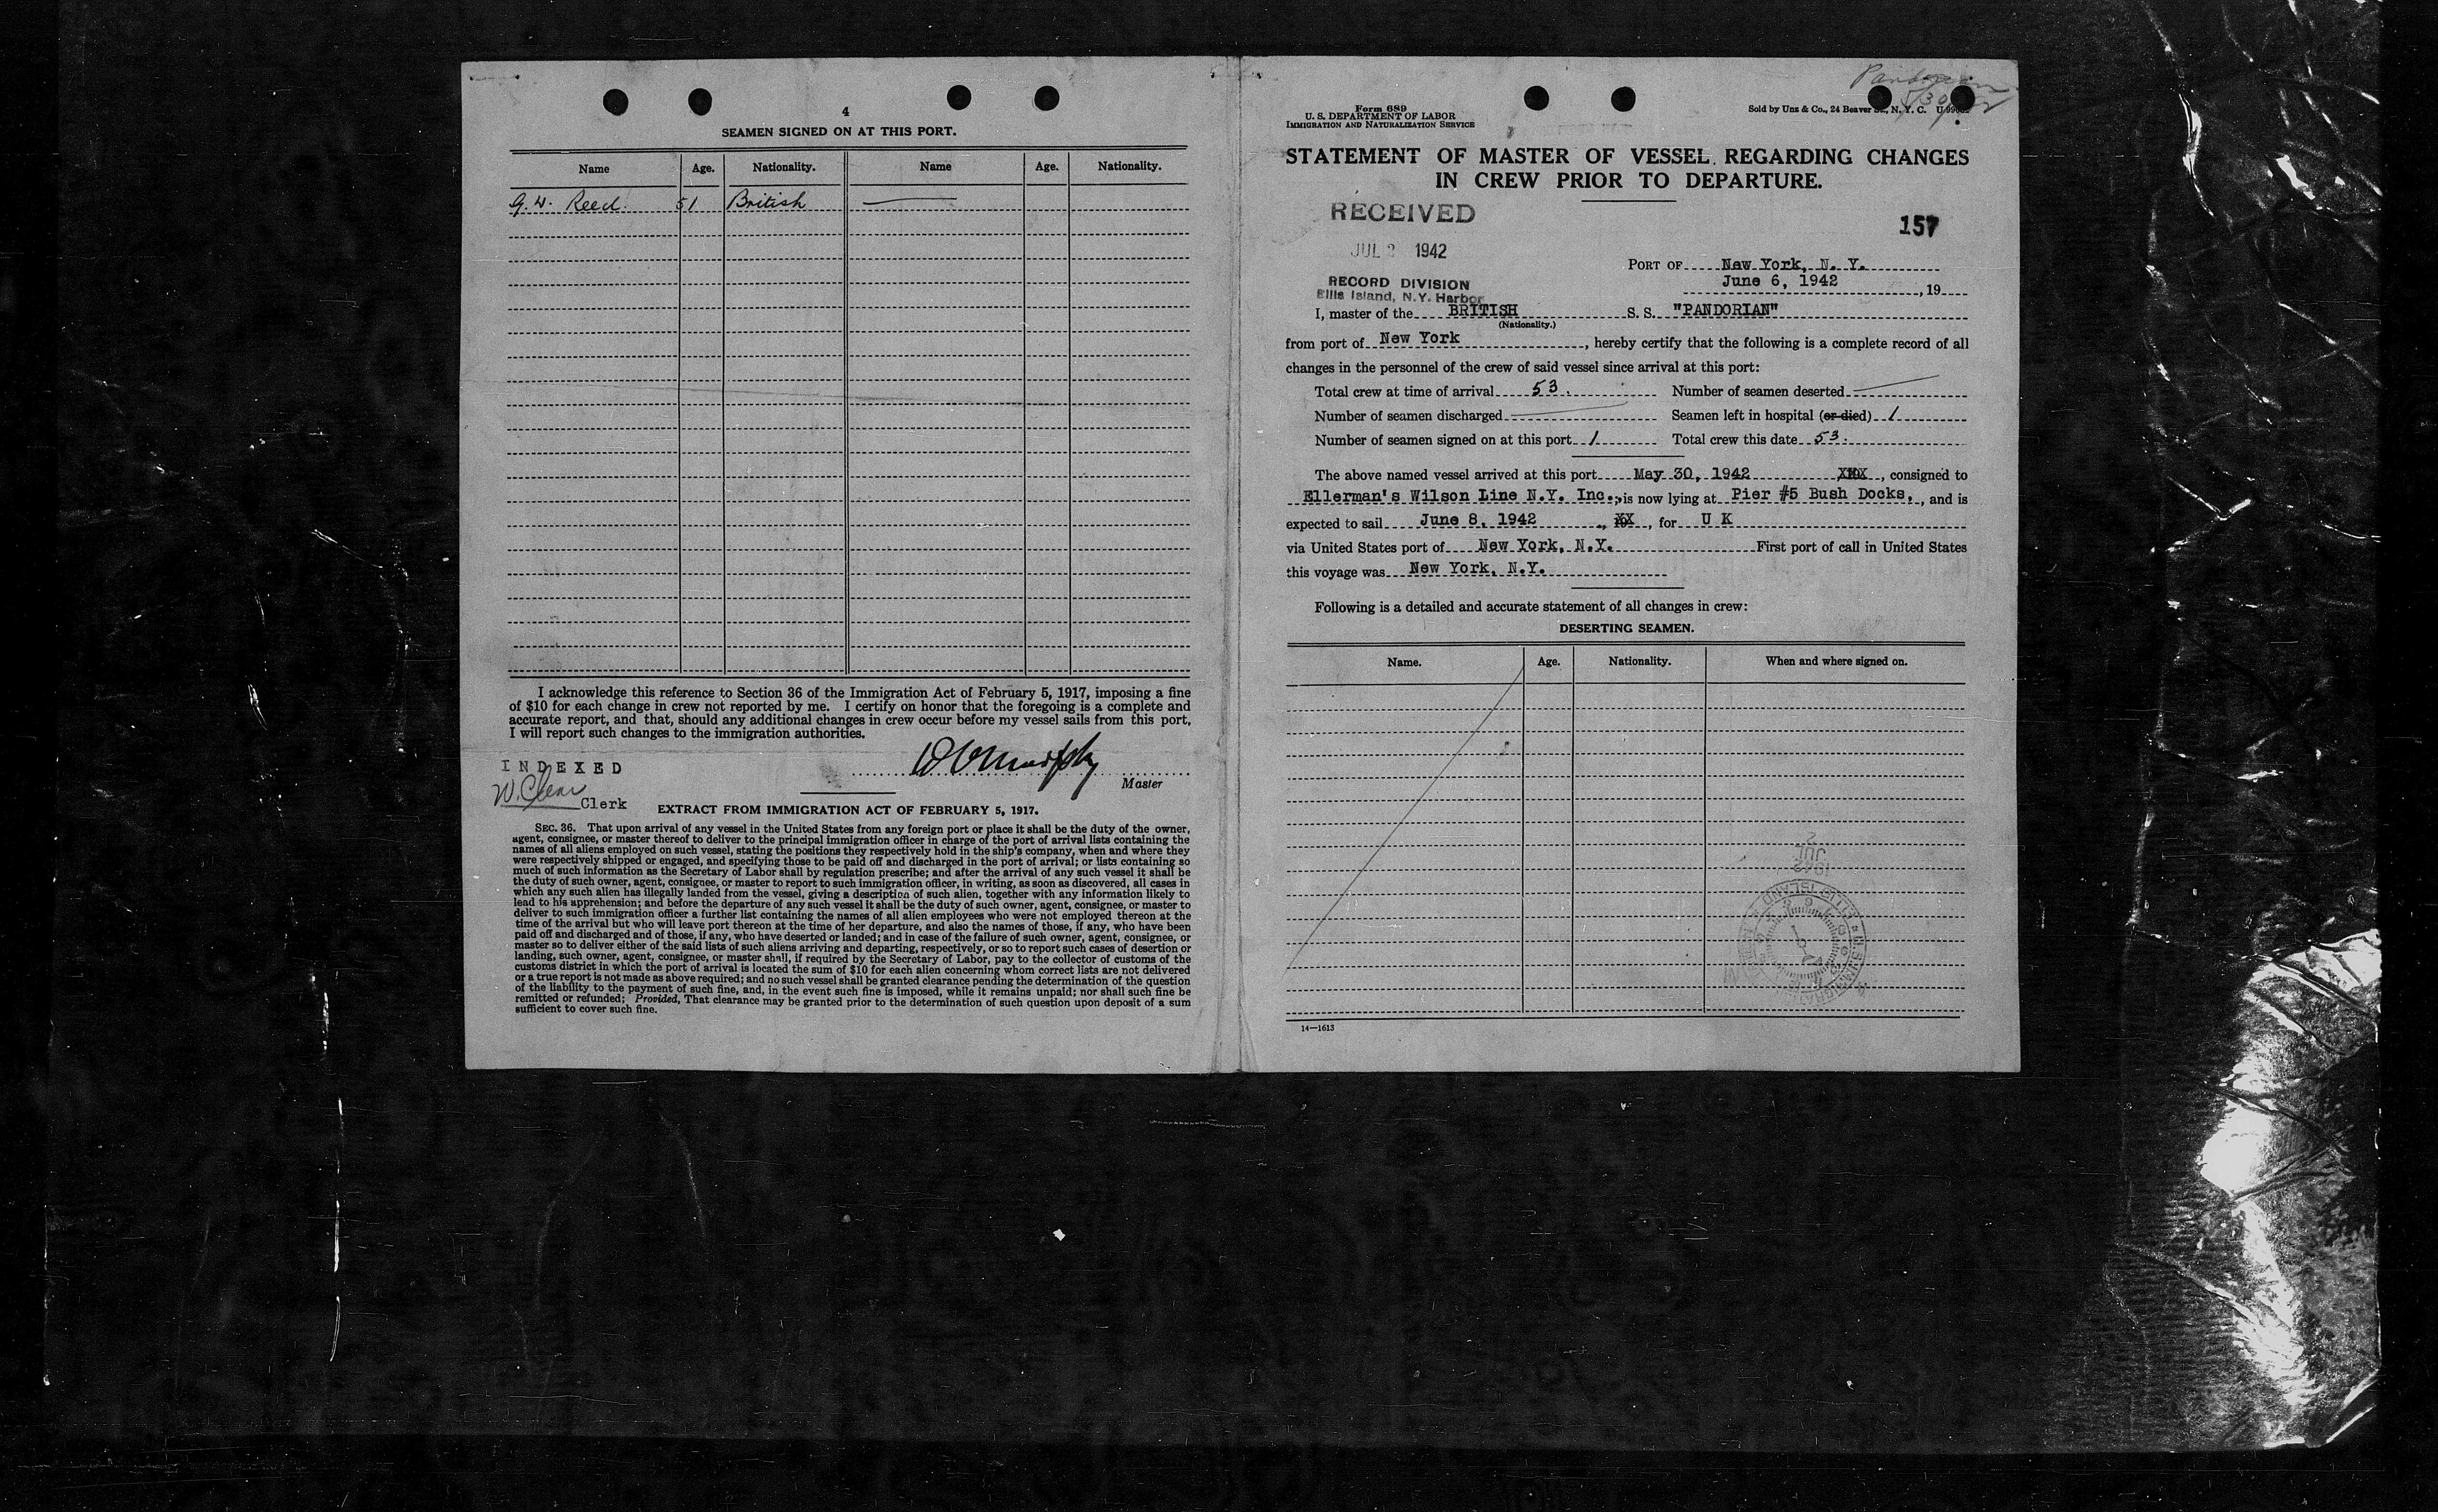 4
SEAMEN SIGNED ON AT THIS PORT.
Name Age. Nationality. Name Age. Nationality.
G. W. Reed. 51 British
I acknowledge this reference to Section 36 of the Immigration Act of February 5, 1917, imposing a fine
of $10 for each change in crew not reported by me. I certify on honor that the foregoing is a complete and
accurate report, and that, should any additional changes in crew occur before my vessel sails from this port,
I will report such changes to the immigration authorities.
INDEXED
Master
W. Clear Clerk
EXTRACT FROM IMMIGRATION ACT OF FEBRUARY 5, 1917.
SEC. 36. That upon arrival of any vessel in the United States from any foreign port or place it shall be the duty of the owner,
agent, consignee, or master thereof to deliver to the principal immigration officer in charge of the port of arrival lists containing the
names of all aliens employed on such vessel, stating the positions they respectively hold in the ship's company, when and where they
were respectively shipped or engaged, and specifying those to be paid off and discharged in the port of arrival; or lists containing so
much of such information as the Secretary of Labor shall by regulation prescribe; and after the arrival of any such vessel it shall be
the duty of such owner, agent, consignee, or master to report to such immigration officer, in writing, as soon as discovered, all cases in
which any such alien has illegally landed from the vessel, giving a description of such alien, together with any information likely to
lead to his apprehension; and before the departure of any such vessel it shall be the duty of such owner, agent, consignee, or master to
deliver to such immigration officer a further list containing the names of all alien employees who were not employed thereon at the
time of the arrival but who will leave port thereon at the time of her departure, and also the names of those, if any, who have been
paid off and discharged and of those, if any, who have deserted or landed; and in case of the failure of such owner, agent, consignee, or
master so to deliver either of the said lists of such aliens arriving and departing, respectively, or so to report such cases of desertion or
landing, such owner, agent, consignee, or master shall, if required by the Secretary of Labor, pay to the collector of customs of the
customs district in which the port of arrival is located the sum of $10 for each alien concerning whom correct lists are not delivered
or a true report is not made as above required; and no such vessel shall be granted clearance pending the determination of the question
of the liability to the payment of such fine, and, in the event such fine is imposed, while it remains unpaid; nor shall such fine be
remitted or refunded; Provided, That clearance may be granted prior to the determination of such question upon deposit of a sum
sufficient to cover such fine.
Form 689
U. S. DEPARTMENT OF LABOR
IMMIGRATION AND NATURALIZATION SERVICE
Sold by Unz & Co., 24 Beaver St., N. Y. C.
STATEMENT OF MASTER OF VESSEL REGARDING CHANGES
IN CREW PRIOR TO DEPARTURE.
RECEIVED
157
JUL 2 1942
PORT OF New York, N. Y.
RECORD DIVISION
June 6, 1942 , 19
Ellis Island, N.Y. Harbor
I, master of the BRITISH S. S. "PANDORIAN"
(Nationality.)
from port of New York, hereby certify that the following is a complete record of all
changes in the personnel of the crew of said vessel since arrival at this port:
Total crew at time of arrival 53. Number of seamen deserted
Number of seamen discharged Seamen left in hospital (or died) 1
Number of seamen signed on at this port 1 Total crew this date 53.
The above named vessel arrived at this port May 30, 1942 XXX, consigned to
Ellerman's Wilson Line N.Y. Inc., is now lying at Pier #5 Bush Docks., and is
expected to sail June 8, 1942, XX, for U K
via United States port of New York, N.Y. First port of call in United States
this voyage was New York, N.Y.
Following is a detailed and accurate statement of all changes in crew:
DESERTING SEAMEN.
Name. Age. Nationality. When and where signed on.
1942
JUL
2
14—1613